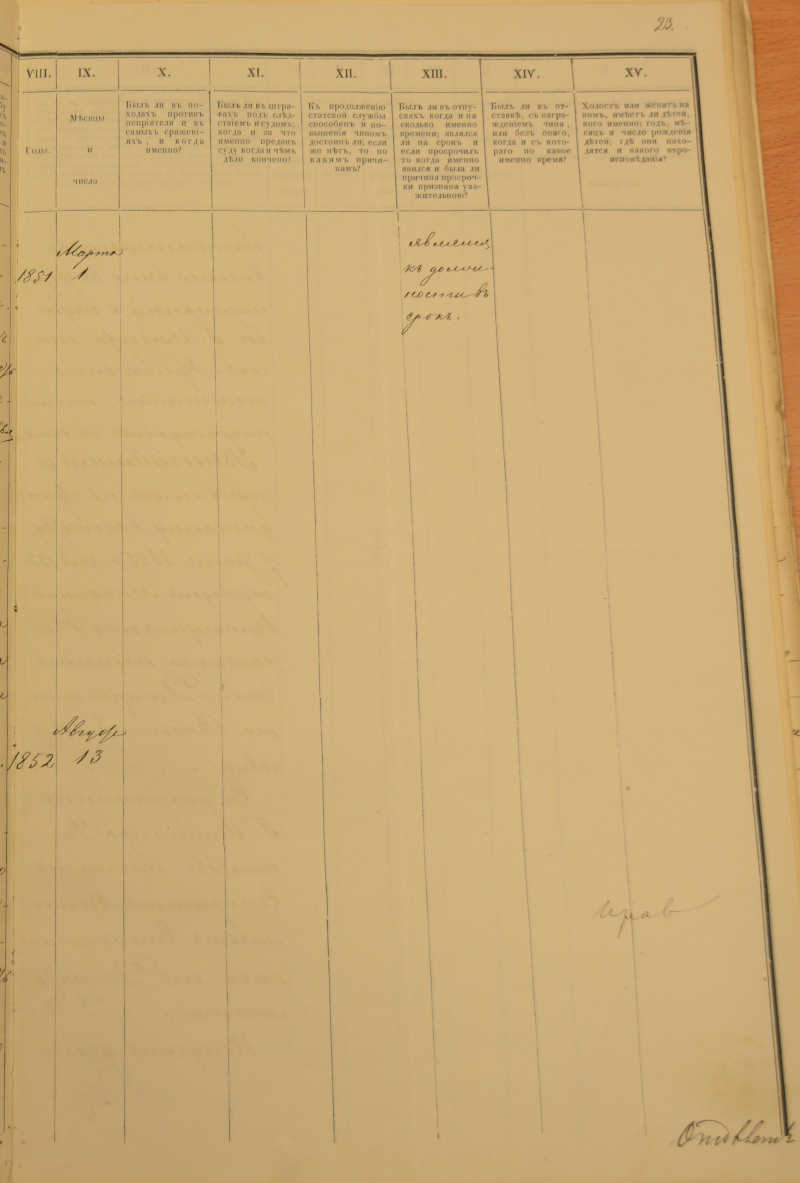 23.
VIII. IX. X. XI. XII. XIII. XIV. XV.
Годы.
Мѣсяцы
и
число
Былъ ли въ по-
ходахъ противъ
непріятеля и въ
самыхъ сражені-
яхъ, и когда
именно?
Былъ ли въ штра-
фахъ подъ слѣд-
ствіемъ и судомъ;
когда и за что
именно преданъ
суду когда и чѣмъ
дѣло кончено?
Къ продолженію
статской службы
способенъ и по-
вышенія чиномъ
достоинъ ли; если
же нѣтъ, то по
какимъ причи-
намъ?
Былъ ли въ отпу-
скахъ когда и на
сколько именно
времени; являлся
ли на срокъ и
если просрочилъ
то когда именно
явился и была ли
причина просроч-
ки признана ува-
жительною?
Былъ ли въ от-
ставкѣ, съ награ-
жденіемъ чина,
или безъ онаго,
когда и съ кото-
раго по какое
именно время?
Холостъ или женатъ на
комъ, имѣетъ ли дѣтей,
кого именно; годъ, мѣ-
сяцъ и число рожденія
дѣтей; гдѣ они нахо-
дятся и какого вѣро-
исповѣданія?
Марта
1851 1
явился
къ долж-
ности въ
срокъ.
Август
1852 13